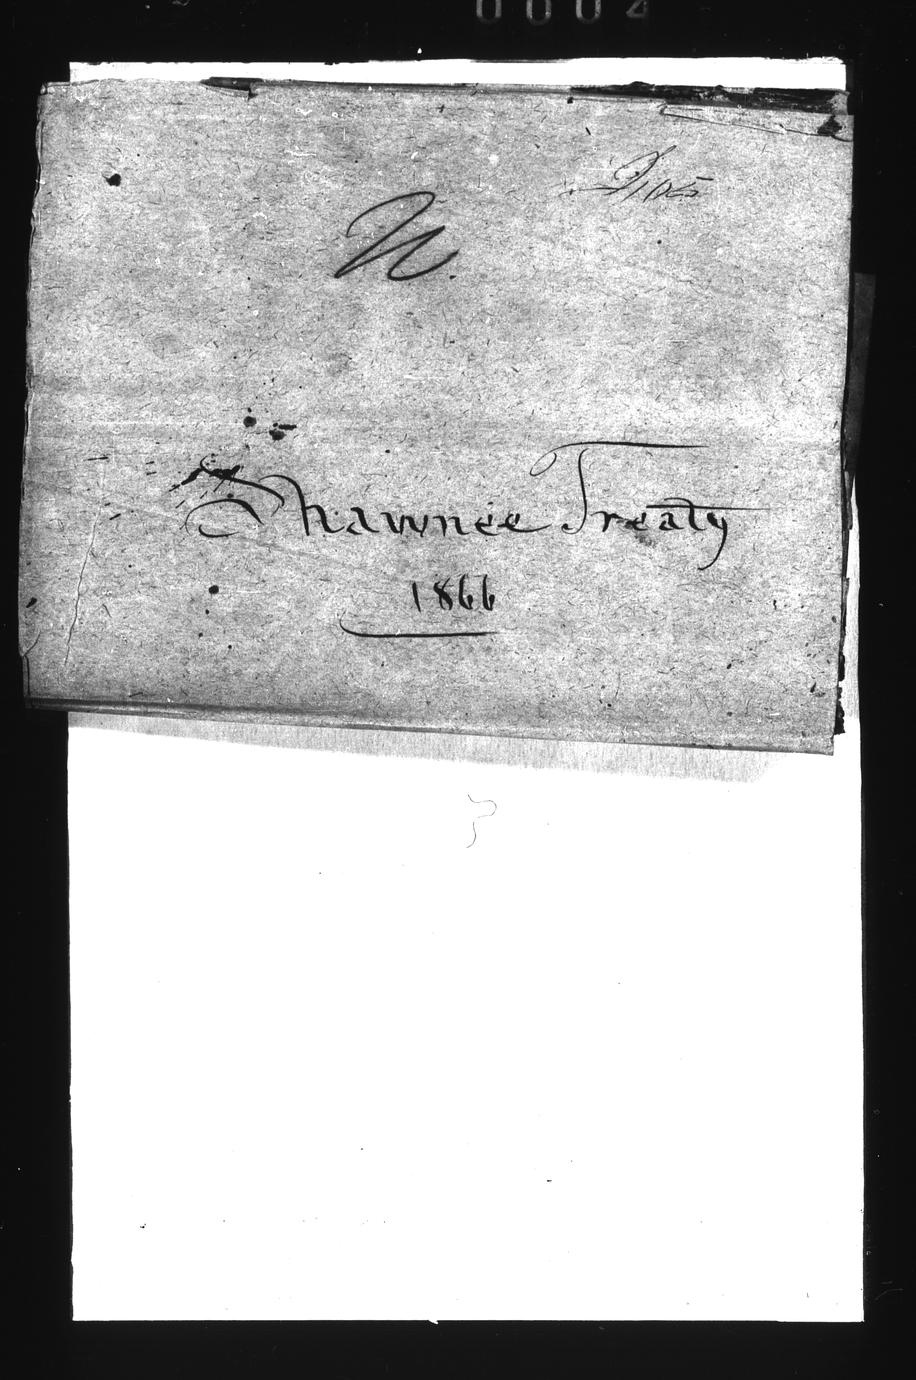 0004
N.
Shawnee Treaty
1866